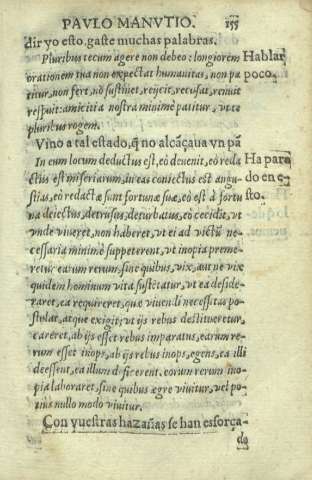 PAVLO MANVTIO. 155
dir yo esto. gaste muchas palabras.
Pluribus tecum agere non debeo: longiorem Hablar
orationem tua non expectat humanitas, non pa poco.
titur, non fert, nō sustinet, reijcit, recusat, renuit
respuit: amicitia nostra minimè patitur, vt te
pluribus rogem.
Vino a tal estado, q̃ no alcãçaua vn pã
In eum locum deductus est, eò deuenit, eò reda Ha para
ctus est miseriarum, in eas coniectus est angu- do en e
stias, eò redactæ sunt fortunæ suæ, eò est à fortu sto.
na deiectus, detrusus, deturbatus, eò cecidit, vt
vnde viueret, non haberet, vt ei ad victũ ne
cessaria minimè suppeterent, vt inopia preme
retur earum rerum, sine quibus, vix, aut ne vix
quidem hominum vita sustētatur, vt ea deside-
raret, ea requireret, quæ viuendi necessitas po
stulat, atque exigit; vt ijs rebus destitueretur,
careret, ab ijs esset rebus imparatus, earum re-
rum esset inops, ab ijs rebus inops, egens, ea illi
deessent, ea illum deficerent. eorum rerum ino
pia laboraret, sine quibus ægre viuitur, vel po
tius nullo modo viuitur.
Con vuestras hazañas se han esforça-
do